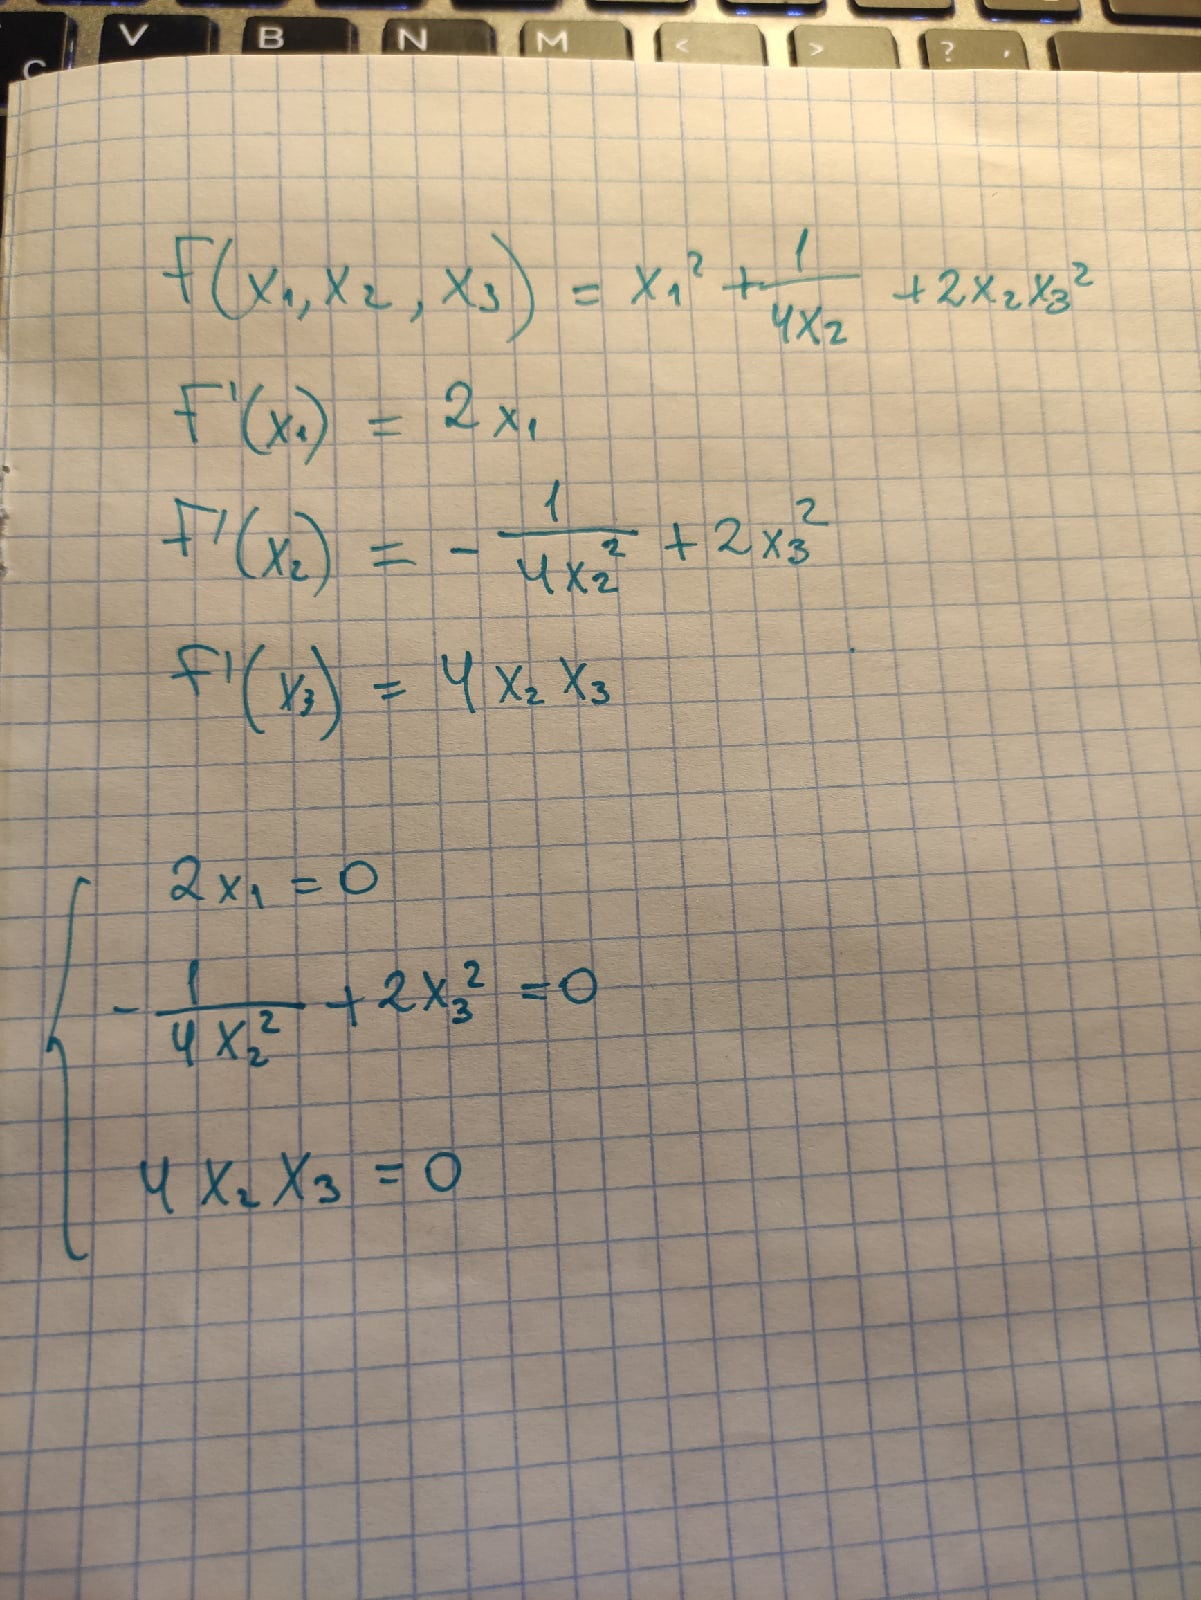 C V B N M < > ? ,
F(x₁, x₂, x₃) = x₁² + 1/(4x₂) + 2x₂x₃²
F'(x₁) = 2x₁
F'(x₂) = - 1/(4x₂²) + 2x₃²
F'(x₃) = 4x₂x₃
{ 2x₁ = 0
- 1/(4x₂²) + 2x₃² = 0
4x₂x₃ = 0